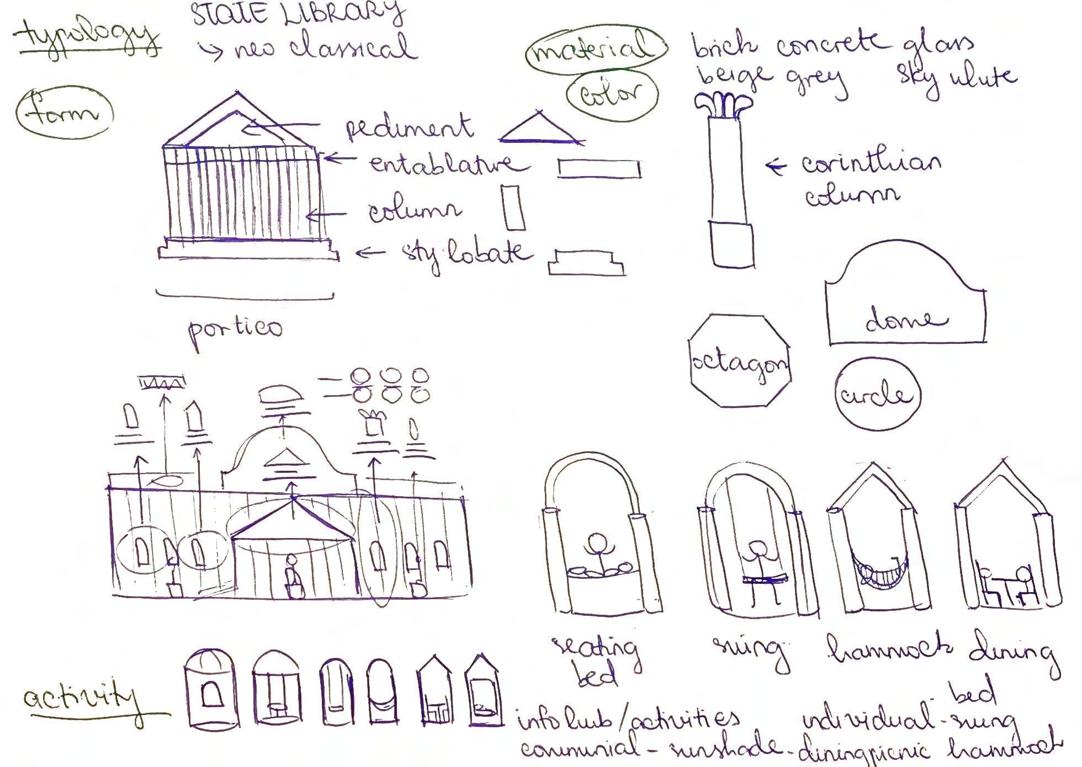 typology
STATE LIBRARY
↳ neo classical
material
color
brick concrete glass
beige grey sky white
form
pediment
entablature
column
stylobate
portico
corinthian
column
dome
octagon
circle
seating
bed
swing
hammock
dining
activity
info hub/activities
communial - sunshade - dining picnic
bed
individual - swing
hammock